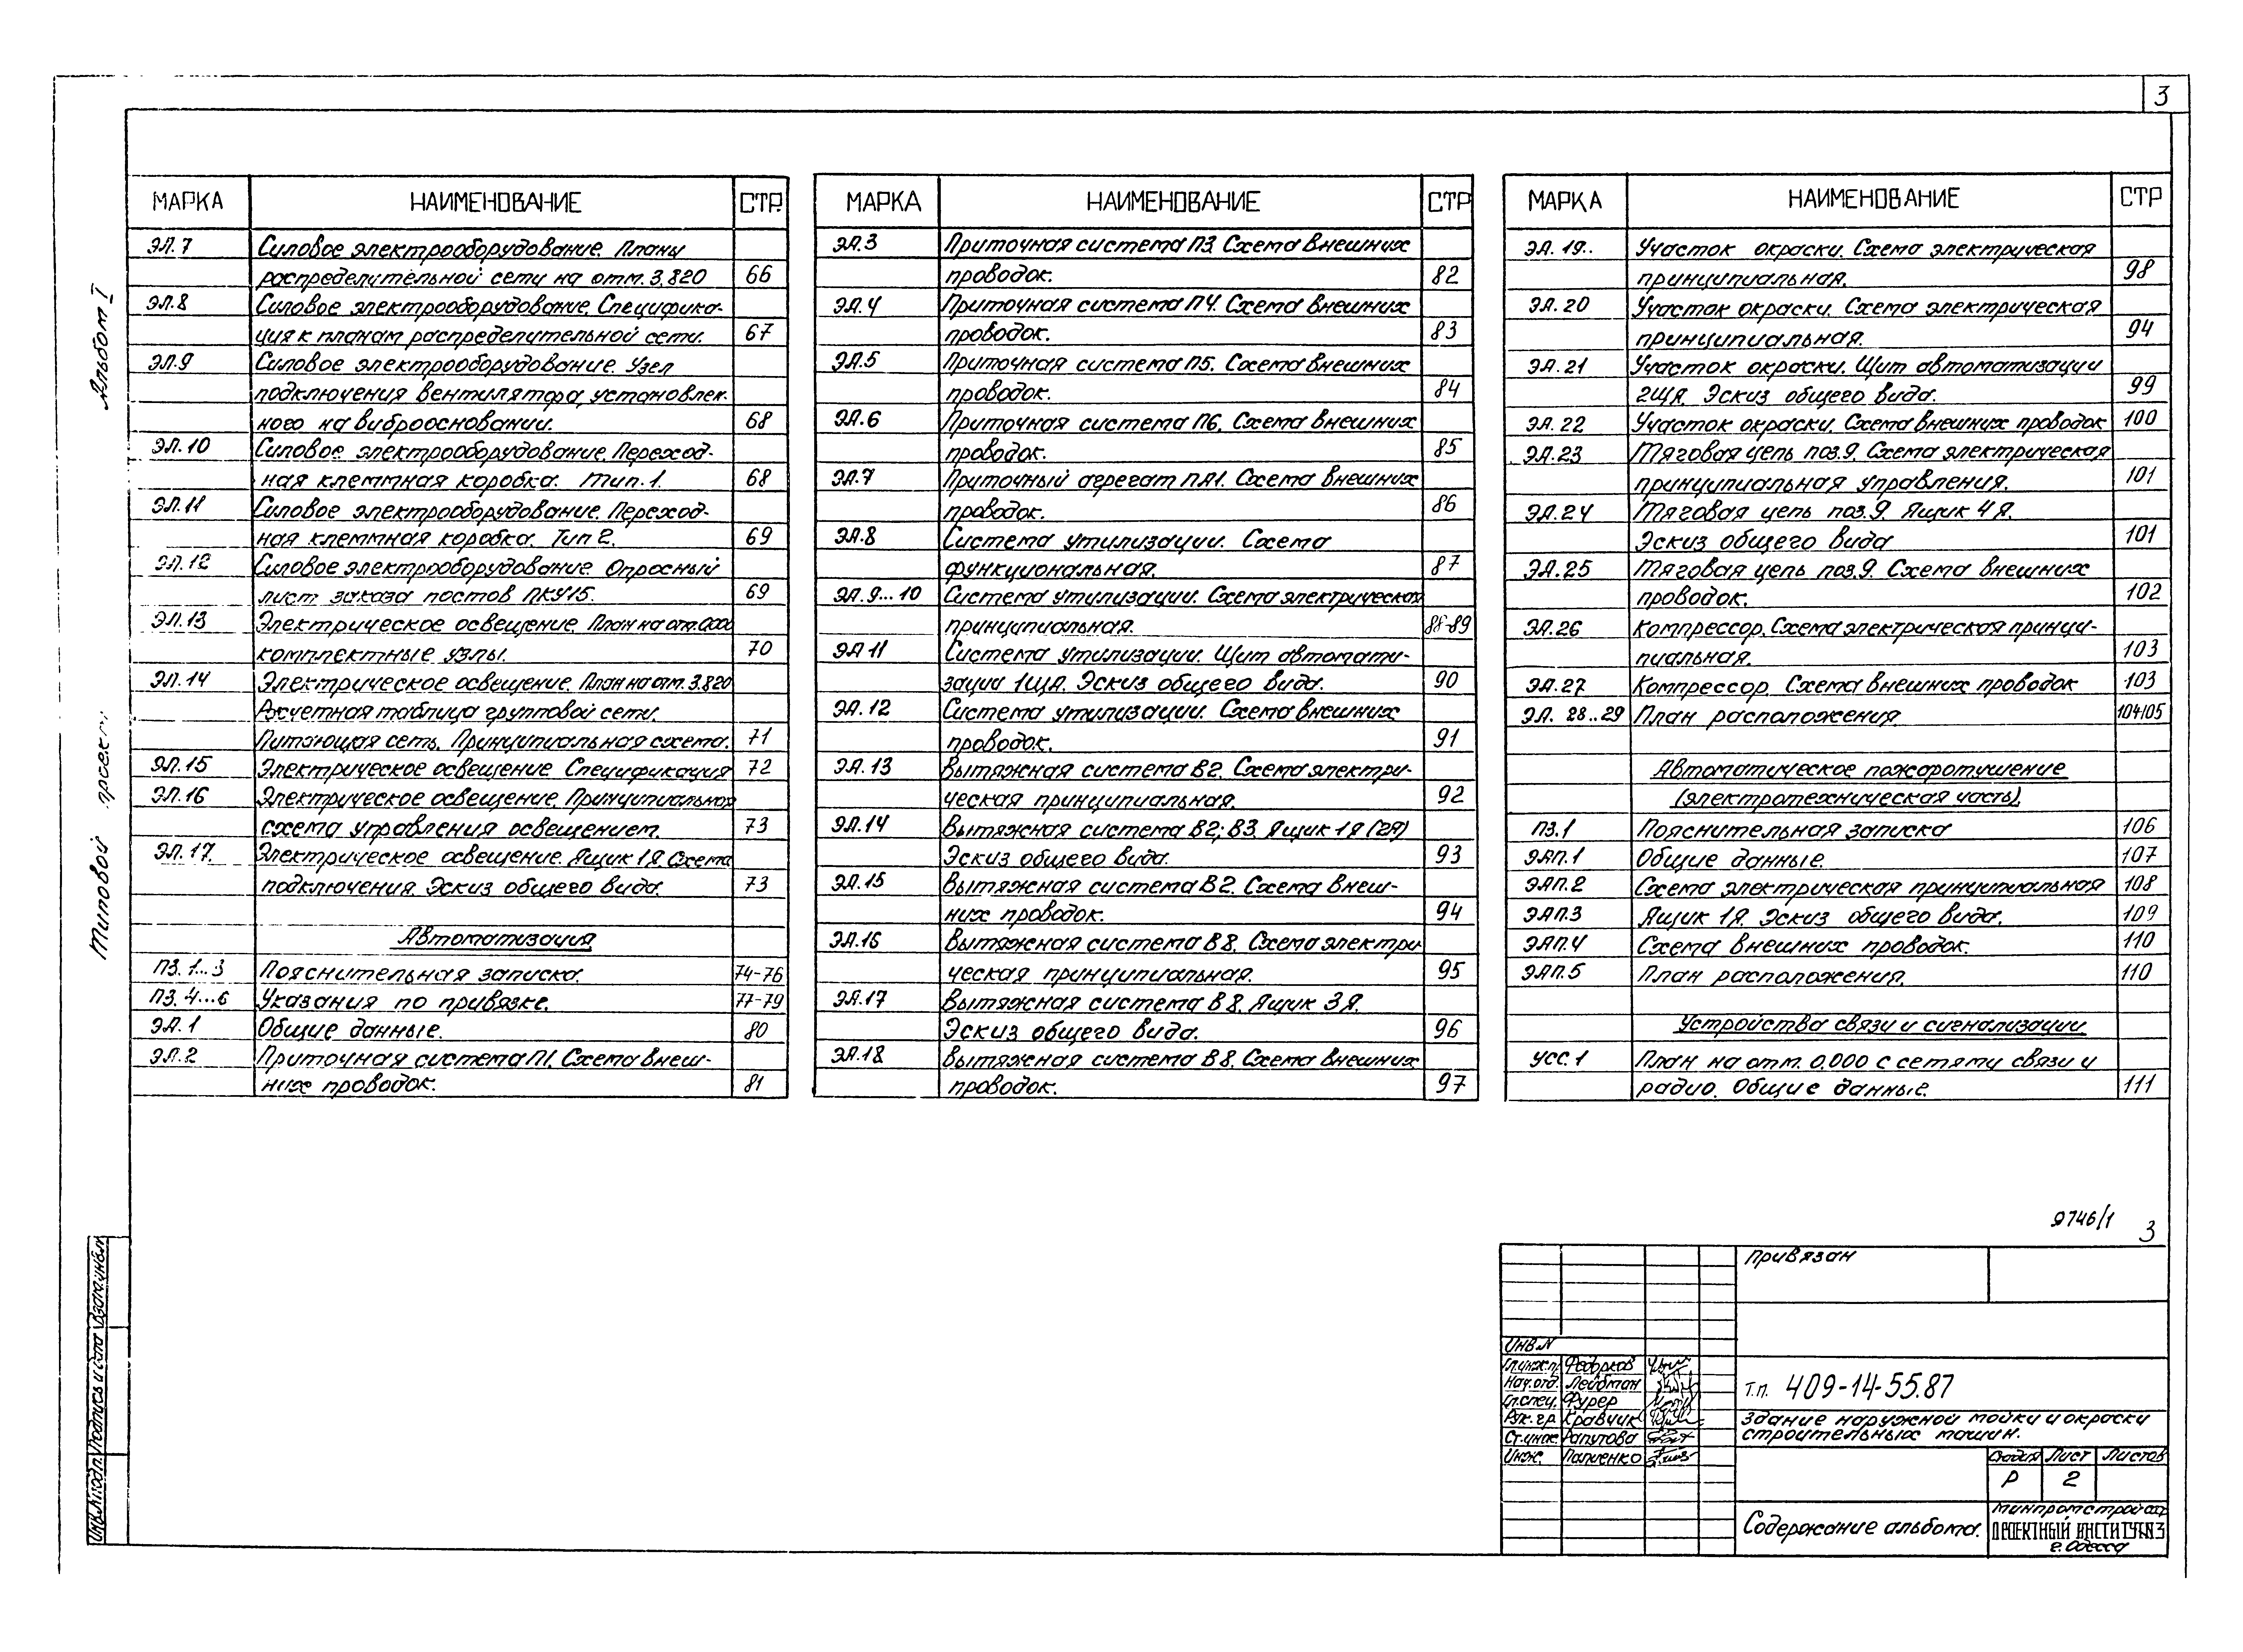 3
Альбом I
Типовой
МАРКА НАИМЕНОВАНИЕ СТР.
ЭЛ.7 Силовое электрооборудование. Планы
распределительной сети на отм. 3.820 66
ЭЛ.8 Силовое электрооборудование. Специфика-
ция к планам распределительной сети. 67
ЭЛ.9 Силовое электрооборудование. Узел
подключения вентилятора, установлен-
ного на виброосновании. 68
ЭЛ.10 Силовое электрооборудование. Переход-
ная клеммная коробка. Тип. 1. 68
ЭЛ.11 Силовое электрооборудование. Переход-
ная клеммная коробка. Тип 2. 69
ЭЛ.12 Силовое электрооборудование. Опросный
лист заказа постов ПКУ15. 69
ЭЛ.13 Электрическое освещение. План на отм. 0.000
комплектные узлы. 70
ЭЛ.14 Электрическое освещение. План на отм. 3.820
Расчетная таблица групповой сети.
Питающая сеть. Принципиальная схема. 71
ЭЛ.15 Электрическое освещение Спецификация 72
ЭЛ.16 Электрическое освещение. Принципиальная
схема управления освещением. 73
ЭЛ.17. Электрическое освещение. Ящик 1Я. Схема
подключения. Эскиз общего вида. 73
Автоматизация
ПЗ. 1...3 Пояснительная записка. 74-76
ПЗ. 4...6 Указания по привязке. 77-79
ЭА.1 Общие данные. 80
ЭА.2 Приточная система П1. Схема внеш-
них проводок. 81
МАРКА НАИМЕНОВАНИЕ СТР
ЭА.3 Приточная система П3. Схема внешних
проводок. 82
ЭА.4 Приточная система П4. Схема внешних
проводок. 83
ЭА.5 Приточная система П5. Схема внешних
проводок. 84
ЭА.6 Приточная система П6. Схема внешних
проводок. 85
ЭА.7 Приточный агрегат ПА1. Схема внешних
проводок. 86
ЭА.8 Система утилизации. Схема
функциональная. 87
ЭА.9...10 Система утилизации. Схема электрическая
принципиальная. 88-89
ЭА 11 Система утилизации. Щит автомати-
зации 1ЩА. Эскиз общего вида. 90
ЭА.12 Система утилизации. Схема внешних
проводок. 91
ЭА.13 Вытяжная система В2. Схема электри-
ческая принципиальная. 92
ЭА.14 Вытяжная система В2; В3. Ящик 1Я (2Я)
Эскиз общего вида. 93
ЭА.15 Вытяжная система В2. Схема внеш-
них проводок. 94
ЭА.16 Вытяжная система В8. Схема электри-
ческая принципиальная. 95
ЭА.17 Вытяжная система В8. Ящик 3Я.
Эскиз общего вида. 96
ЭА.18 Вытяжная система В8. Схема внешних
проводок. 97
МАРКА НАИМЕНОВАНИЕ СТР
ЭА. 19.. Участок окраски. Схема электрическая
принципиальная. 98
ЭА. 20 Участок окраски. Схема электрическая
принципиальная. 94
ЭА. 21 Участок окраски. Щит автоматизации
2ЩА. Эскиз общего вида. 99
ЭА. 22 Участок окраски. Схема внешних проводок 100
ЭА.23 Тяговая цепь поз.9. Схема электрическая
принципиальная управления. 101
ЭА.24 Тяговая цепь поз.9. Ящик 4Я.
Эскиз общего вида 101
ЭА.25 Тяговая цепь поз.9. Схема внешних
проводок. 102
ЭА.26 Компрессор. Схема электрическая принци-
пиальная. 103
ЭА.27 Компрессор. Схема внешних проводок 103
ЭА. 28..29 План расположения 104105
Автоматическое пожаротушение
(электротехническая часть).
ПЗ.1 Пояснительная записка 106
ЭАП.1 Общие данные. 107
ЭАП.2 Схема электрическая принципиальная 108
ЭАП.3 Ящик 1Я. Эскиз общего вида. 109
ЭАП.4 Схема внешних проводок. 110
ЭАП.5 План расположения. 110
Устройства связи и сигнализации
УСС.1 План на отм. 0.000 с сетями связи и
радио. Общие данные. 111
9746/1 3
Привязан
Инв.N
Гл.инж.п. Федорков
Нач.отд. Лейбман
Гл.спец. Фурер
Рук.гр. Кравчик
Ст.инж. Рапутова
Инж.
Т.п. 409-14-55.87
Здание наружной мойки и окраски
строительных машин.
Стадия Лист Листов
Р 2
Содержание альбома.
Минпромстрой
ПРОЕКТНЫЙ ИНСТИТУТ №3
г. Одесса
Инв.№подл. Подпись и дата Взам.инв.№